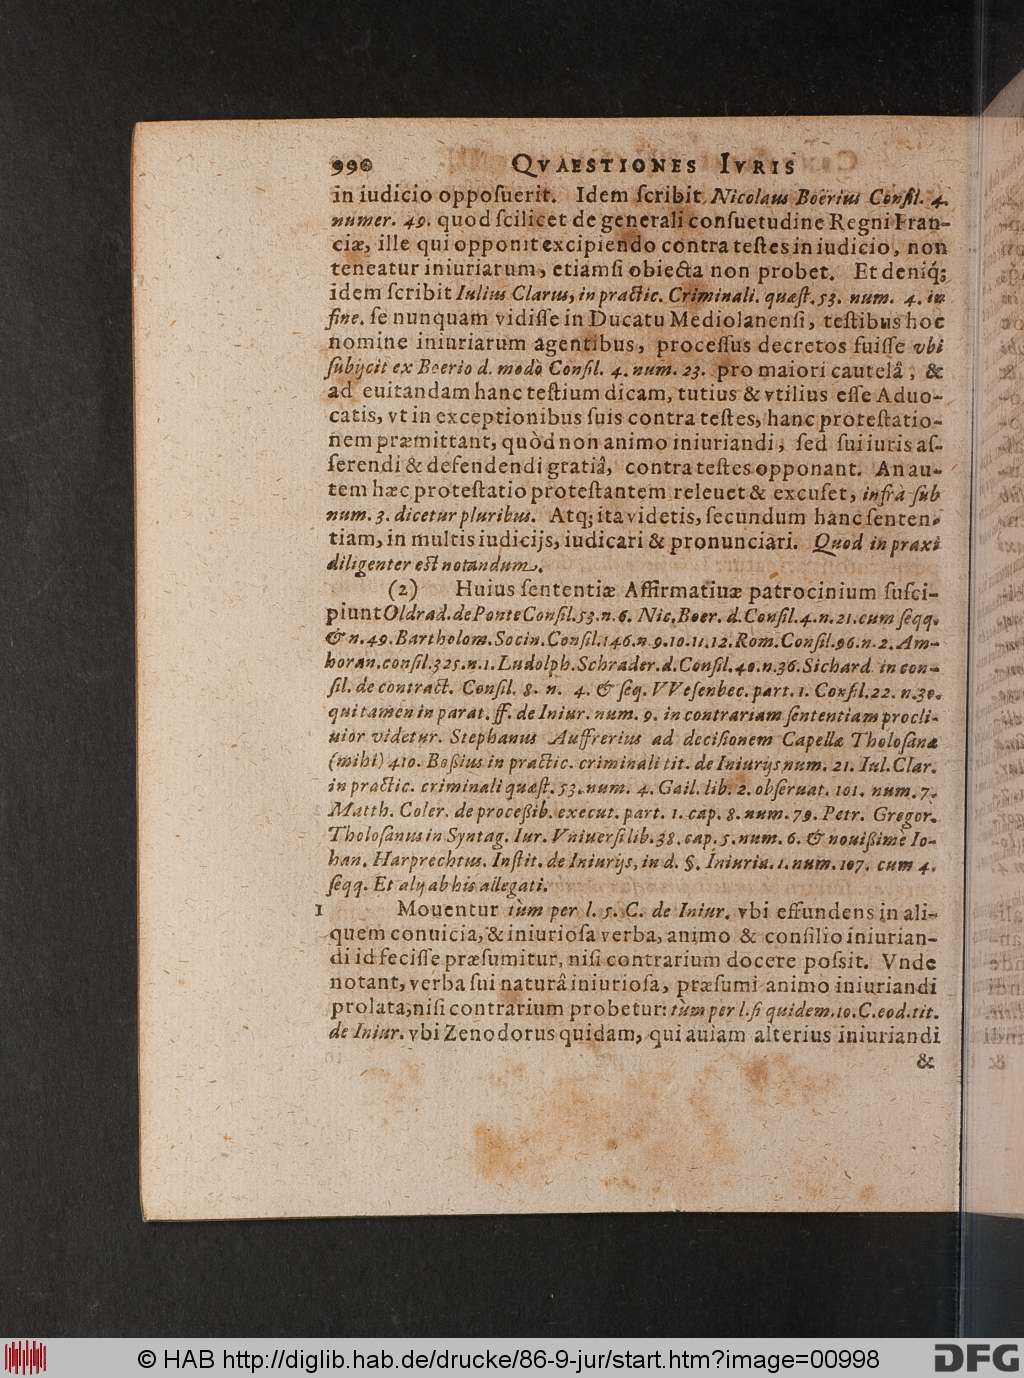 990 QVAESTIONES IVRIS
in iudicio oppoſuerit. Idem ſcribit Nicolaus Boërius Conſil. 4.
numer. 49. quod ſcilicet de generali conſuetudine Regni Fran-
ciæ, ille qui opponit excipiendo contra teſtes in iudicio, non
teneatur iniuriarum, etiamſi obiecta non probet. Et deniq́;
idem ſcribit Iulius Clarus, in practic. Criminali. quæſt. 53. num. 4. in
fine. ſe nunquam vidiſſe in Ducatu Mediolanenſi, teſtibus hoc
nomine iniuriarum agentibus, proceſſus decretos fuiſſe vbi
ſubijcit ex Boerio d. modò Conſil. 4. num. 23. pro maiori cautelâ, &
ad euitandam hanc teſtium dicam, tutius & vtilius eſſe Aduo-
catis, vt in exceptionibus ſuis contra teſtes, hanc proteſtatio-
nem præmittant, quòd non animo iniuriandi, ſed ſui iuris aſ-
ſerendi & defendendi gratiâ, contra teſtes opponant. An au-
tem hæc proteſtatio proteſtantem releuet & excuſet, infrà ſub
num. 3. dicetur pluribus. Atq; ita videtis, ſecundum hanc ſenten-
tiam, in multis iudicijs, iudicari & pronunciari. Quod in praxi
diligenter eſt notandum.
(2) Huius ſententiæ Affirmatiuæ patrocinium ſuſci-
piunt Oldrad. de Ponte Conſil. 53. n. 6. Nic. Boer. d. Conſil. 4. n. 21. cum ſeqq.
& n. 49. Bartholom. Socin. Conſil. 146. n. 9. 10. 11. 12. Rom. Conſil. 96. n. 2. Am-
boran. conſil. 325. n. 1. Ludolph. Schrader. d. Conſil. 40. n. 36. Sichard in con-
ſil. de contract. Conſil. 8. n. 4. & ſeq. VVeſenbec. part. 1. Conſil. 22. n. 30.
qui tamen in parat. ff. de Iniur. num. 9. in contrariam ſententiam procli-
uior videtur. Stephanus Auffrerius ad deciſionem Capellæ Tholoſanæ
(mihi) 410. Boſsius in practic. criminali tit. de Iniurijs num. 21. Iul. Clar.
in practic. criminali quæſt. 53. num. 4. Gail. lib. 2. obſeruat. 101. num. 7.
Matth. Coler. de proceſsib. execut. part. 1. cap. 8. num. 79. Petr. Gregor.
Tholoſanus in Syntag. Iur. Vniuerſi lib. 38. cap. 5. num. 6. & nouiſsimè Io-
han. Harprechtus. Inſtit. de Iniurijs, in d. §. Iniuria. 1. num. 107. cum 4.
ſeqq. Et alij ab his allegati.
1 Mouentur tùm per l. 5. C. de Iniur. vbi effundens in ali-
quem conuicia, & iniurioſa verba, animo & conſilio iniurian-
di id feciſſe præſumitur, niſi contrarium docere poſsit. Vnde
notant, verba ſui naturâ iniurioſa, præſumi animo iniuriandi
prolata, niſi contrarium probetur: tùm per l. ſi quidem. 10. C. eod. tit.
de Iniur. vbi Zenodorus quidam, qui auiam alterius iniuriandi
&
© HAB http://diglib.hab.de/drucke/86-9-jur/start.htm?image=00998
DFG